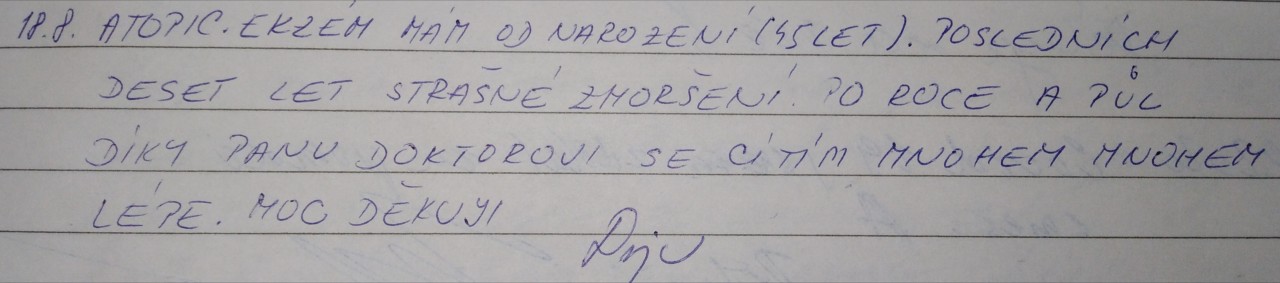 18.8. ATOPIC. EKZÉM MÁM OD NAROZENÍ (45 LET). POSLEDNÍCH
DESET LET STRAŠNÉ ZHORŠENÍ. PO ROCE A PŮL
DÍKY PANU DOKTOROVI SE CÍTÍM MNOHEM MNOHEM
LÉPE. MOC DĚKUJI